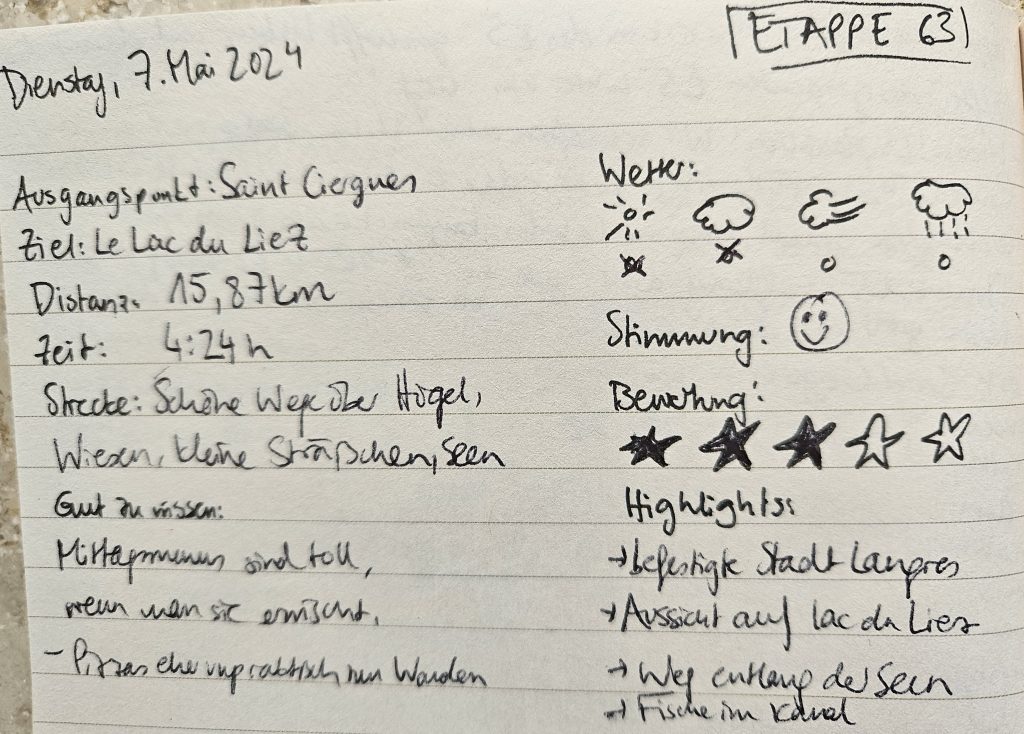 ETAPPE 63
Dienstag, 7. Mai 2024
Ausgangspunkt: Saint Ciergues
Ziel: Le Lac du Liez
Distanz: 15,87km
Zeit: 4:24h
Strecke: Schöne Wege über Hügel,
Wiesen, kleine Sträßchen, Seen
Gut zu wissen:
Mittagsmenus sind toll,
wenn man sie erwischt.
- Pizzas eher unpraktisch zum Wandern
Wetter:
Stimmung:
Bewertung:
Highlights:
→ befestigte Stadt Langres
→ Aussicht auf Lac du Liez
→ Weg entlang der Seen
→ Fische im Kanal